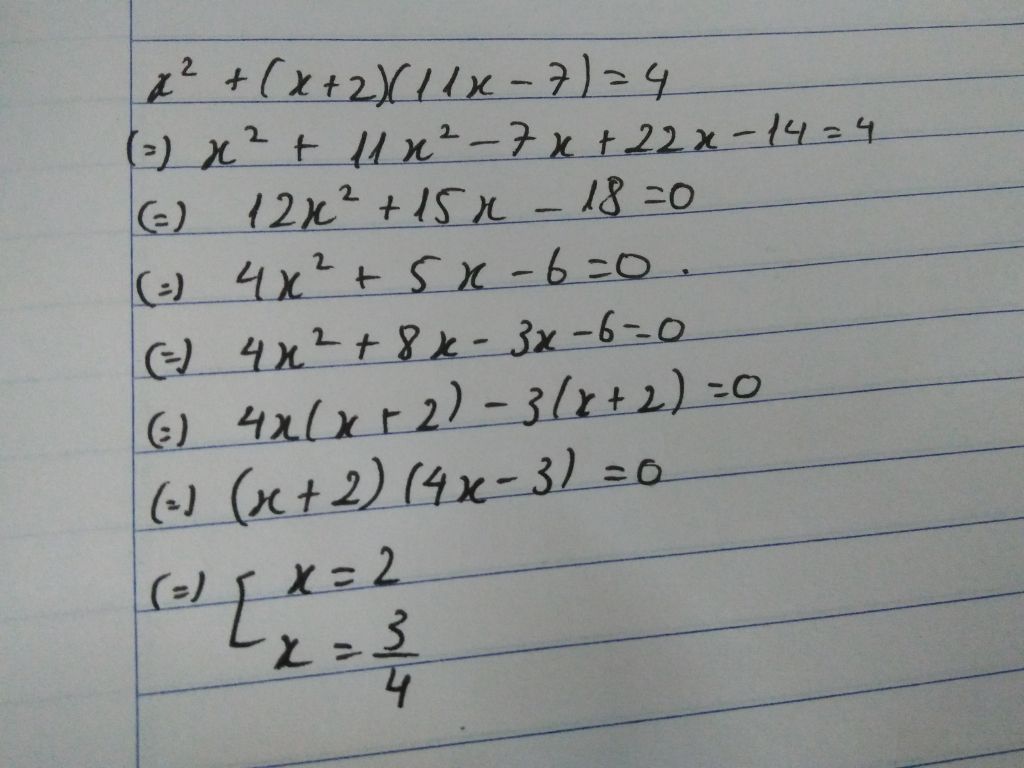 x² + (x+2)(11x-7) = 4
(=) x² + 11x² - 7x + 22x - 14 = 4
(=) 12x² + 15x - 18 = 0
(=) 4x² + 5x - 6 = 0.
(=) 4x² + 8x - 3x - 6 = 0
(=) 4x(x+2) - 3(x+2) = 0
(=) (x+2)(4x-3) = 0
(=) [ x = 2
x = 3/4